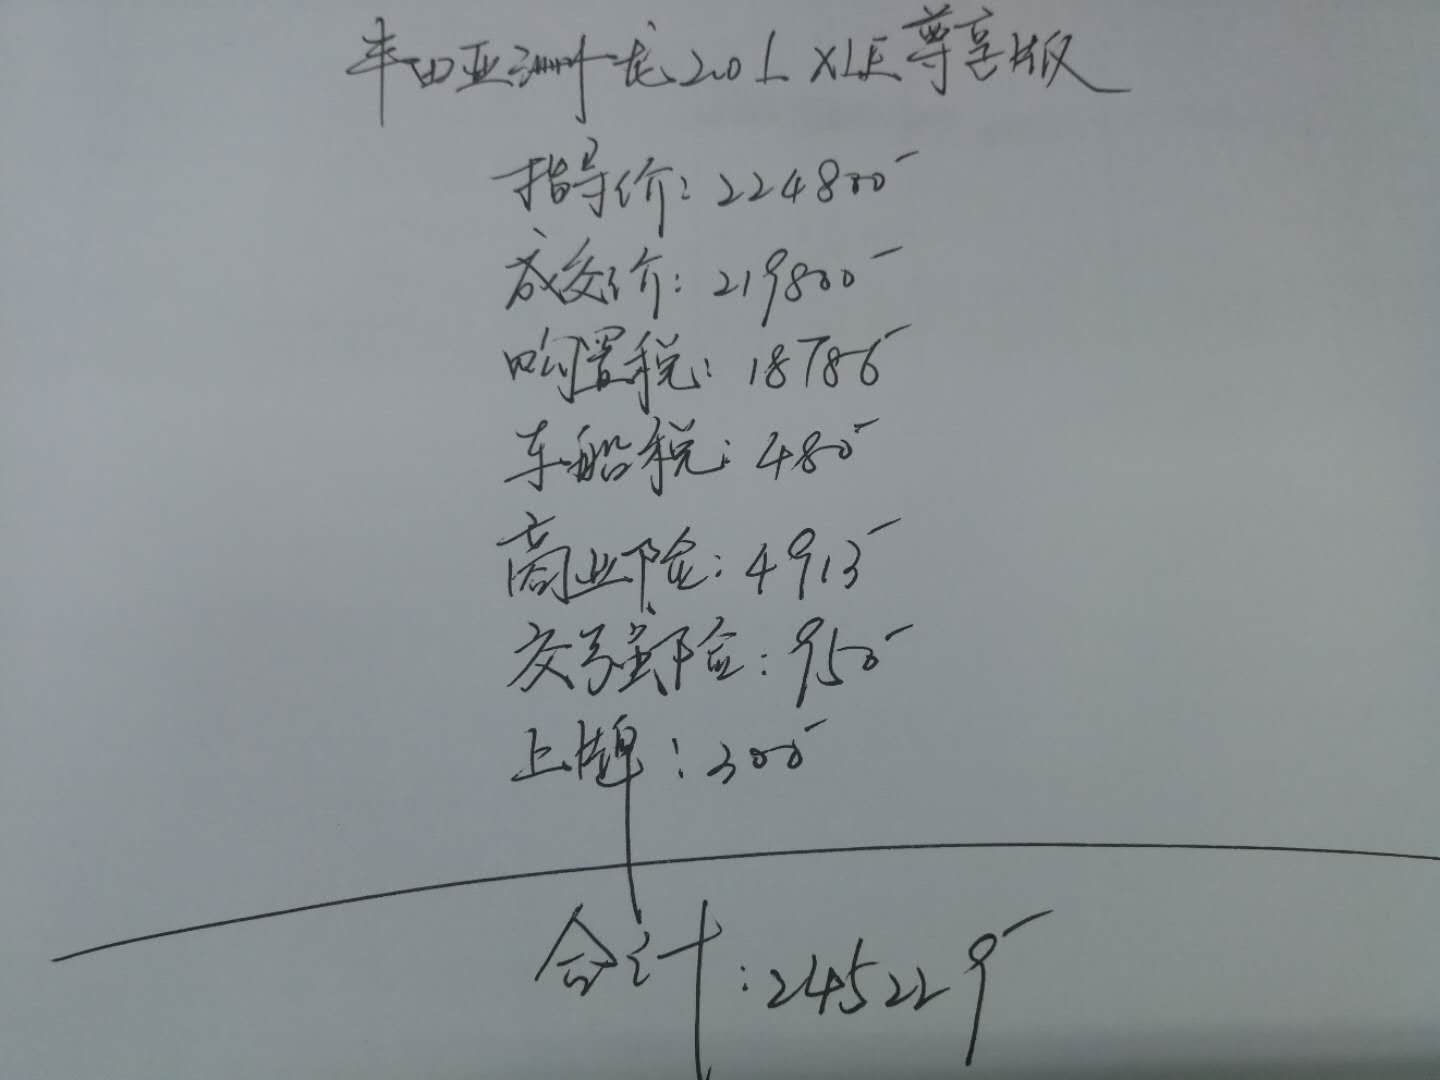 丰田亚洲龙2.0L XLE尊享版
指导价：224800-
成交价：219800-
购置税：18786-
车船税：480-
商业险：4913-
交强险：950-
上牌：300-
合计：245229-